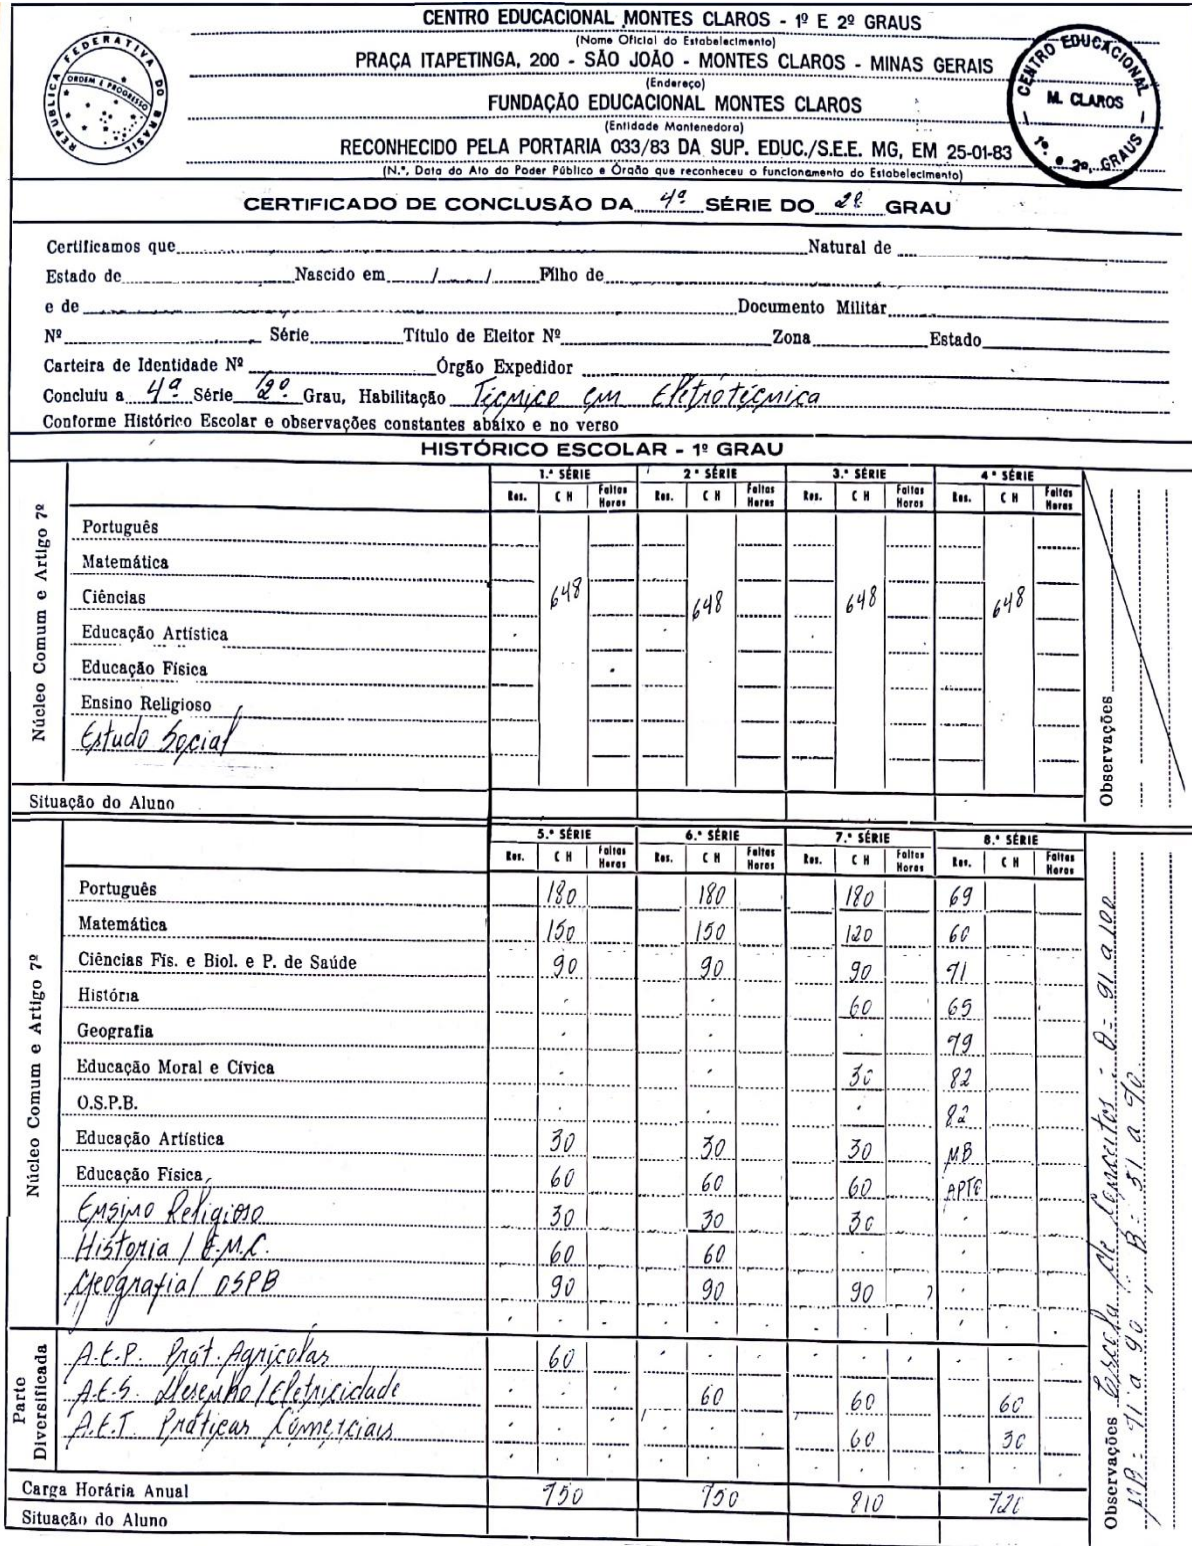 CENTRO EDUCACIONAL MONTES CLAROS - 1º E 2º GRAUS
(Nome Oficial do Estabelecimento)
PRAÇA ITAPETINGA, 200 - SÃO JOÃO - MONTES CLAROS - MINAS GERAIS
(Endereço)
FUNDAÇÃO EDUCACIONAL MONTES CLAROS
(Entidade Mantenedora)
RECONHECIDO PELA PORTARIA 033/83 DA SUP. EDUC./S.E.E. MG, EM 25-01-83
(N.º, Data do Ato do Poder Público e Órgão que reconheceu o funcionamento do Estabelecimento)
REPUBLICA FEDERATIVA DO BRASIL
ORDEM E PROGRESSO
CENTRO EDUCACIONAL
M. CLAROS
1º. e 2º, GRAUS
CERTIFICADO DE CONCLUSÃO DA 4ª SÉRIE DO 2º GRAU
Certificamos que Natural de
Estado de Nascido em / / Filho de
e de Documento Militar
Nº Série Título de Eleitor Nº Zona Estado
Carteira de Identidade Nº Órgão Expedidor
Concluiu a 4ª Série 2º Grau, Habilitação Técnico em Eletrotécnica
Conforme Histórico Escolar e observações constantes abaixo e no verso
HISTÓRICO ESCOLAR - 1º GRAU
1.ª SÉRIE 2ª SÉRIE 3.ª SÉRIE 4ª SÉRIE
Res. C H Faltas Horas Res. C H Faltas Horas Res. C H Faltas Horas Res. C H Faltas Horas
Núcleo Comum e Artigo 7º
Português
Matemática
Ciências 648 648 648 648
Educação Artística
Educação Física
Ensino Religioso
Estudo Social
Situação do Aluno
Observações
5.ª SÉRIE 6.ª SÉRIE 7.ª SÉRIE 8.ª SÉRIE
Res. C H Faltas Horas Res. C H Faltas Horas Res. C H Faltas Horas Res. C H Faltas Horas
Núcleo Comum e Artigo 7º
Português 180 180 180 69
Matemática 150 150 120 60
Ciências Fís. e Biol. e P. de Saúde 90 90 90 71
História 60 65
Geografia 79
Educação Moral e Cívica 30 82
O.S.P.B. 82
Educação Artística 30 30 30 MB
Educação Física 60 60 60 APTO
Ensino Religioso 30 30 30
Historia / E.M.C. 60 60
Geografia/ OSPB 90 90 90
Parte Diversificada
A.E.P. Prát. Agrícolas 60
A.E.S. Desenho/Eletricidade 60 60 60
A.E.T. Práticas Comerciais 60 30
Carga Horária Anual 750 750 810 720
Situação do Aluno
Observações Escala de Conceitos: O = 91 a 100
MB = 71 a 90 B = 51 a 70